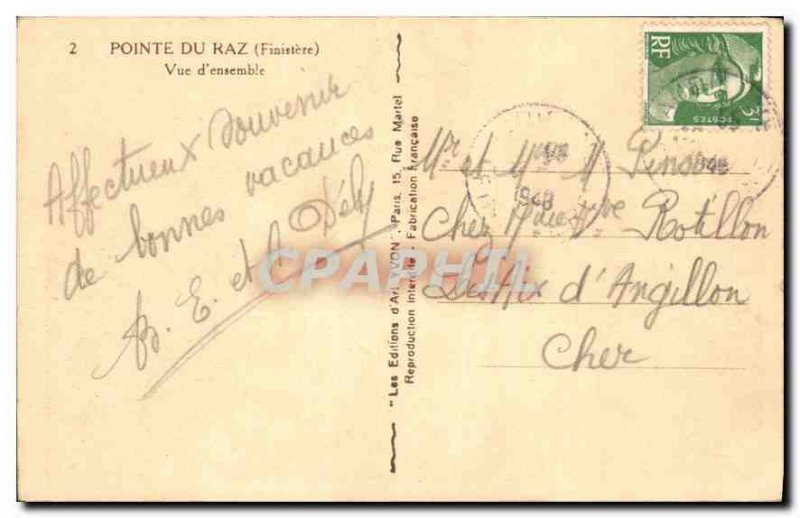 2 POINTE DU RAZ (Finistère)
Vue d'ensemble
Affectueux Souvenir
de bonnes vacances
B. E. et Dély
"Les Editions d'Art YVON", Paris, 15, Rue Martel
Reproduction Interdite - Fabrication Française
RF
3F
POSTES
1948
1948
Mr et Mme M Pinon
Chez Mme Vve Rotillon
Les Aix d'Angillon
Cher
CPAPHIL